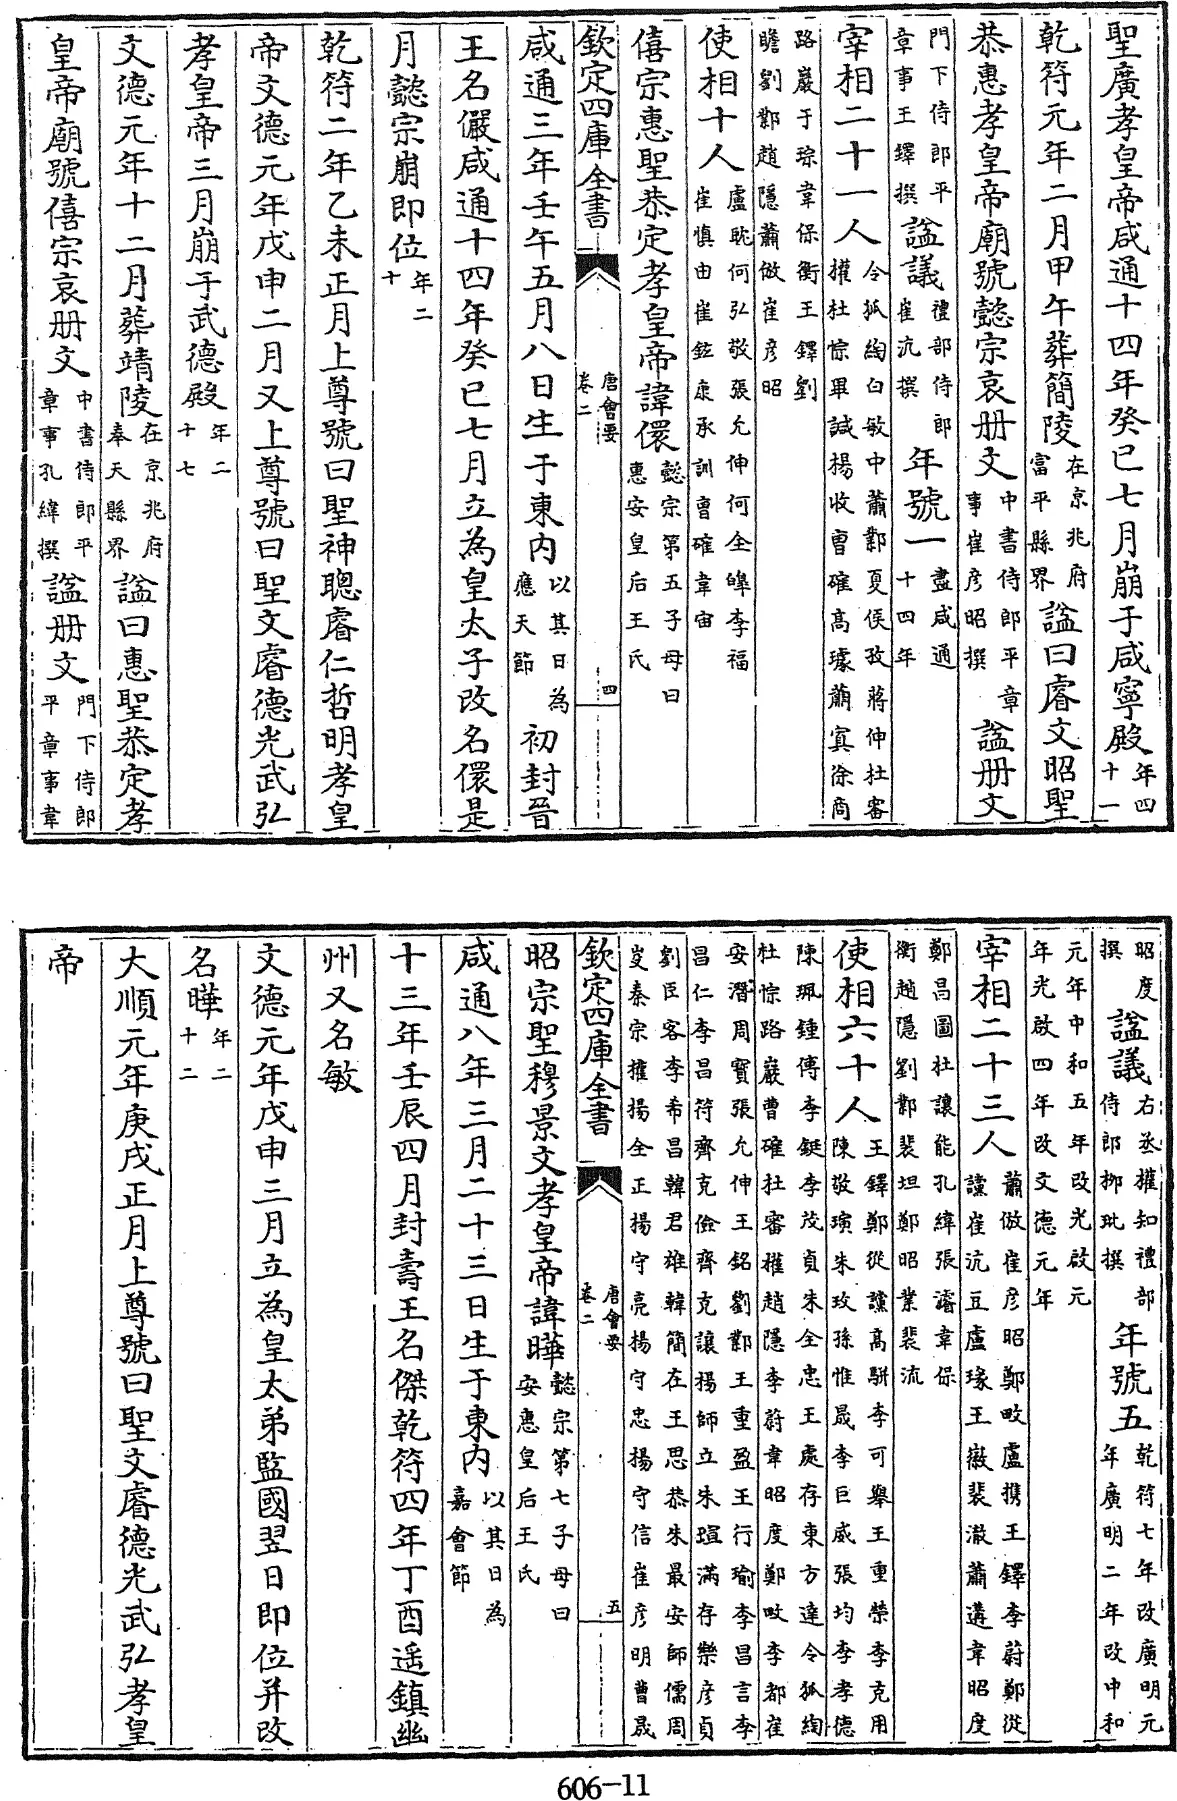 聖廣孝皇帝咸通十四年癸巳七月崩于咸寧殿年四十一
乾符元年二月甲午葬簡陵在京兆府富平縣界諡曰睿文昭聖
恭惠孝皇帝廟號懿宗哀册文中書侍郎平章事崔彦昭撰諡册文
門下侍郎平章事王鐸撰諡議禮部侍郎崔沆撰年號一盡咸通十四年
宰相二十一人令狐綯白敏中蕭鄴夏侯孜蔣仲杜審權杜悰畢諴楊收曹確高璩蕭寘徐商
路巖于琮韋保衡王鐸劉瞻劉鄴趙隱蕭倣崔彦昭
使相十人盧耽何弘敬張允伸何全皞李福崔慎由崔鉉康承訓曹確韋宙
僖宗惠聖恭定孝皇帝諱儇懿宗第五子母曰惠安皇后王氏
欽定四庫全書 唐會要卷二 四
咸通三年壬午五月八日生于東内以其日為應天節初封晉
王名儼咸通十四年癸巳七月立為皇太子改名儇是
月懿宗崩即位年二十
乾符二年乙未正月上尊號曰聖神聰睿仁哲明孝皇
帝文德元年戊申二月又上尊號曰聖文睿德光武弘
孝皇帝三月崩于武德殿年二十七
文德元年十二月葬靖陵在京兆府奉天縣界諡曰惠聖恭定孝
皇帝廟號僖宗哀册文中書侍郎平章事孔緯撰諡册文門下侍郎平章事韋
昭度撰諡議右丞權知禮部侍郎柳玭撰年號五乾符七年改廣明元年廣明二年改中和
元年中和五年改光啟元年光啟四年改文德元年
宰相二十三人蕭倣崔彦昭鄭畋盧携王鐸李蔚鄭從讜崔沆豆盧瑑王徽裴澈蕭遘韋昭度
鄭昌圖杜讓能孔緯張濬韋保衡趙隱劉鄴裴坦鄭昭業裴流
使相六十人王鐸鄭從讜高駢李可舉王重榮李克用陳敬瑄朱玫孫惟晟李巨威張均李孝德
陳珮鍾傳李鋌李茂貞朱全忠王處存東方逵令狐綯杜悰路巖曹確杜審權趙隱李蔚韋昭度鄭畋李都崔
安潛周寶張允伸王銘劉鄴王重盈王行瑜李昌言李昌仁李昌符齊克儉齊克讓楊師立朱瑄滿存樂彦貞
劉臣客李希昌韓君雄韓簡在王思恭朱最安師儒周岌秦宗權揚全正揚守亮揚守忠揚守信崔彦明曹晟
欽定四庫全書 唐會要卷二 五
昭宗聖穆景文孝皇帝諱曄懿宗第七子母曰安惠皇后王氏
咸通八年三月二十三日生于東内以其日為嘉會節
十三年壬辰四月封壽王名傑乾符四年丁酉遥鎮幽
州又名敏
文德元年戊申三月立為皇太弟監國翌日即位并改
名曄年二十二
大順元年庚戌正月上尊號曰聖文睿德光武弘孝皇
帝
606-11